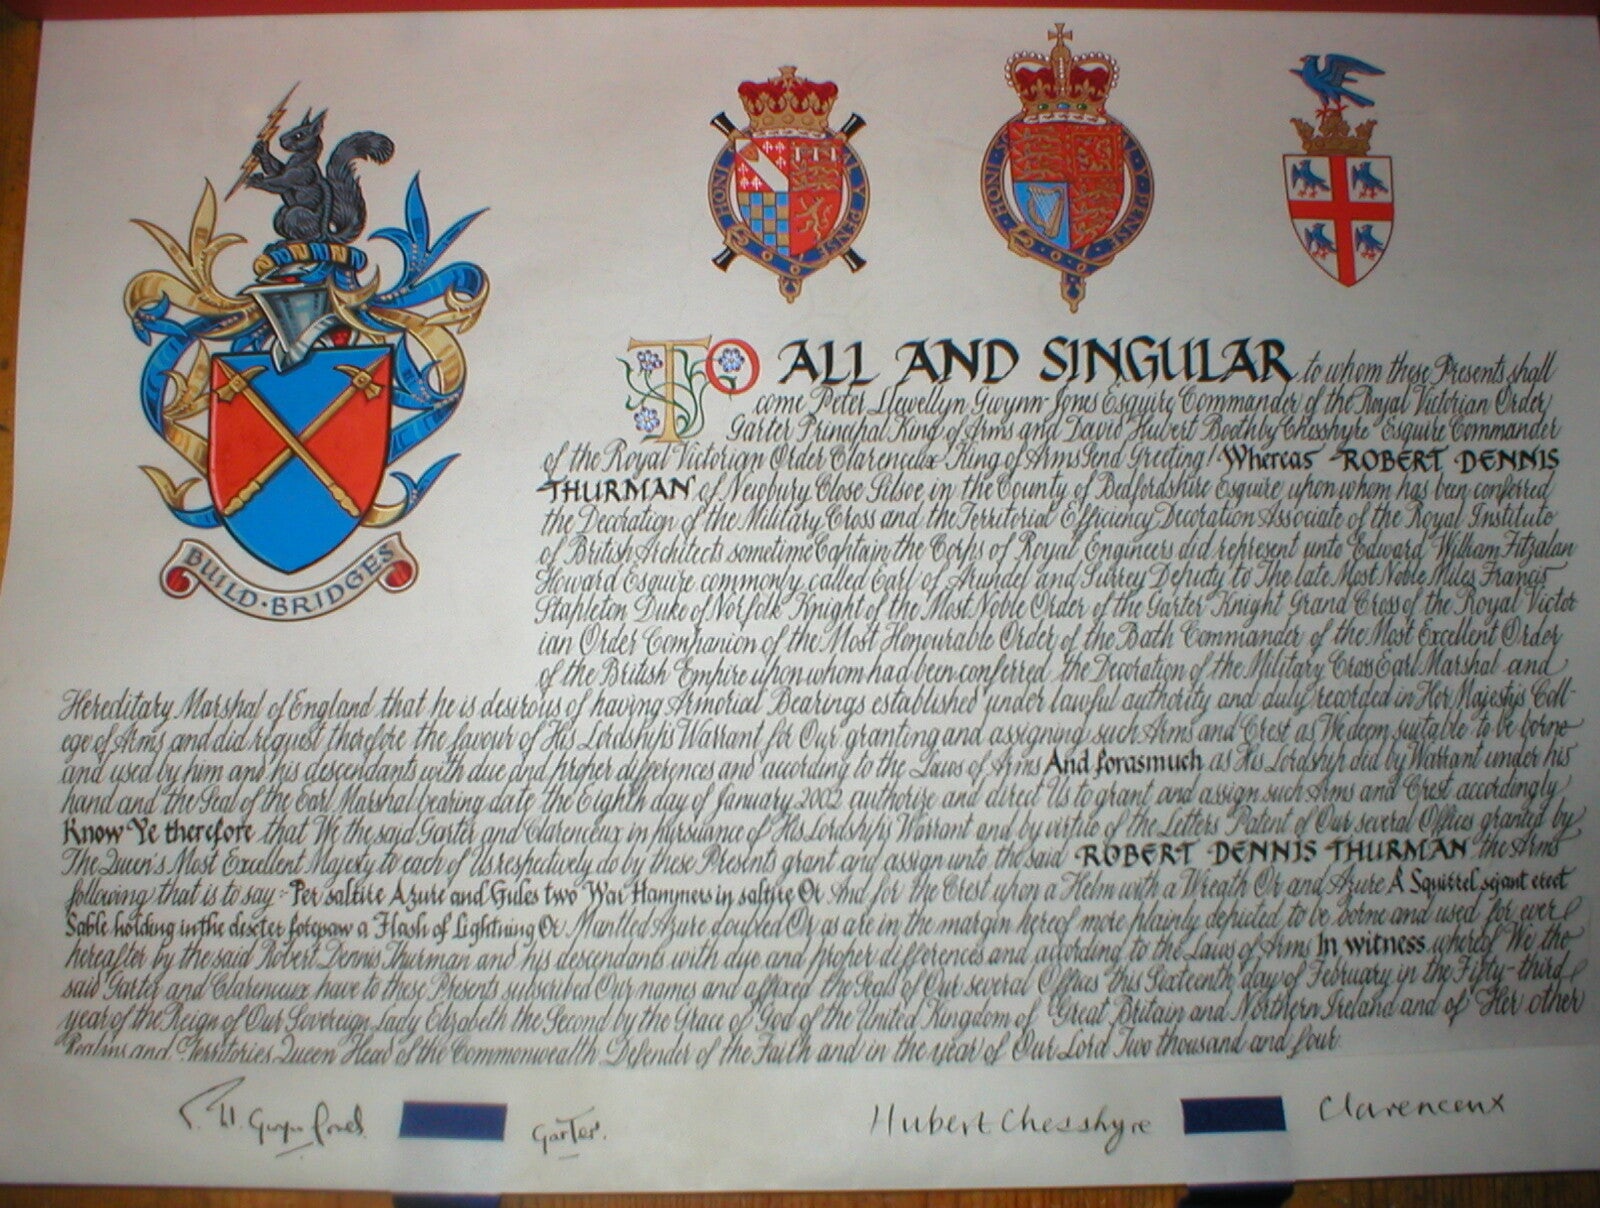 HONI Y PENSE
HONI SO Y PENSE
BUILD·BRIDGES
TO ALL AND SINGULAR to whom these Presents shall
come Peter Llewellyn Gwynn-Jones Esquire Commander of the Royal Victorian Order
Garter Principal King of Arms and David Hubert Boothby Chesshyre Esquire Commander
of the Royal Victorian Order Clarenceux King of Arms Send Greeting! Whereas ROBERT DENNIS
THURMAN of Newbury Close Silsoe in the County of Bedfordshire Esquire upon whom has been conferred
the Decoration of the Military Cross and the Territorial Efficiency Decoration Associate of the Royal Institute
of British Architects sometime Captain the Corps of Royal Engineers did represent unto Edward William Fitzalan
Howard Esquire commonly called Earl of Arundel and Surrey Deputy to The late Most Noble Miles Francis
Stapleton Duke of Norfolk Knight of the Most Noble Order of the Garter Knight Grand Cross of the Royal Victor
ian Order Companion of the Most Honourable Order of the Bath Commander of the Most Excellent Order
of the British Empire upon whom had been conferred the Decoration of the Military Cross Earl Marshal and
Hereditary Marshal of England that he is desirous of having Armorial Bearings established under lawful authority and duly recorded in Her Majesty's Coll-
ege of Arms and did request therefore the favour of His Lordship's Warrant for Our granting and assigning such Arms and Crest as We deem suitable to be borne
and used by him and his descendants with due and proper differences and according to the Laws of Arms And forasmuch as His Lordship did by Warrant under his
hand and the Seal of the Earl Marshal bearing date the Eighth day of January 2002 authorize and direct Us to grant and assign such Arms and Crest accordingly
Know Ye therefore that We the said Garter and Clarenceux in pursuance of His Lordship's Warrant and by virtue of the Letters Patent of Our several Offices granted by
The Queen's Most Excellent Majesty to each of Us respectively do by these Presents grant and assign unto the said ROBERT DENNIS THURMAN the Arms
following that is to say:- Per saltire Azure and Gules two War Hammers in saltire Or And for the Crest upon a Helm with a Wreath Or and Azure A Squirrel sejant erect
Sable holding in the dexter forepaw a Flash of Lightning Or Mantled Azure doubled Or as are in the margin hereof more plainly depicted to be borne and used for ever
hereafter by the said Robert Dennis Thurman and his descendants with due and proper differences and according to the Laws of Arms In witness whereof We the
said Garter and Clarenceux have to these Presents subscribed Our names and affixed the Seals of Our several Offices this Sixteenth day of February in the Fifty-third
year of the Reign of Our Sovereign Lady Elizabeth the Second by the Grace of God of the United Kingdom of Great Britain and Northern Ireland and of Her other
Realms and Territories Queen Head of the Commonwealth Defender of the Faith and in the year of Our Lord Two thousand and four
P. Ll. Gwynn-Jones Garter. Hubert Chesshyre Clarenceux